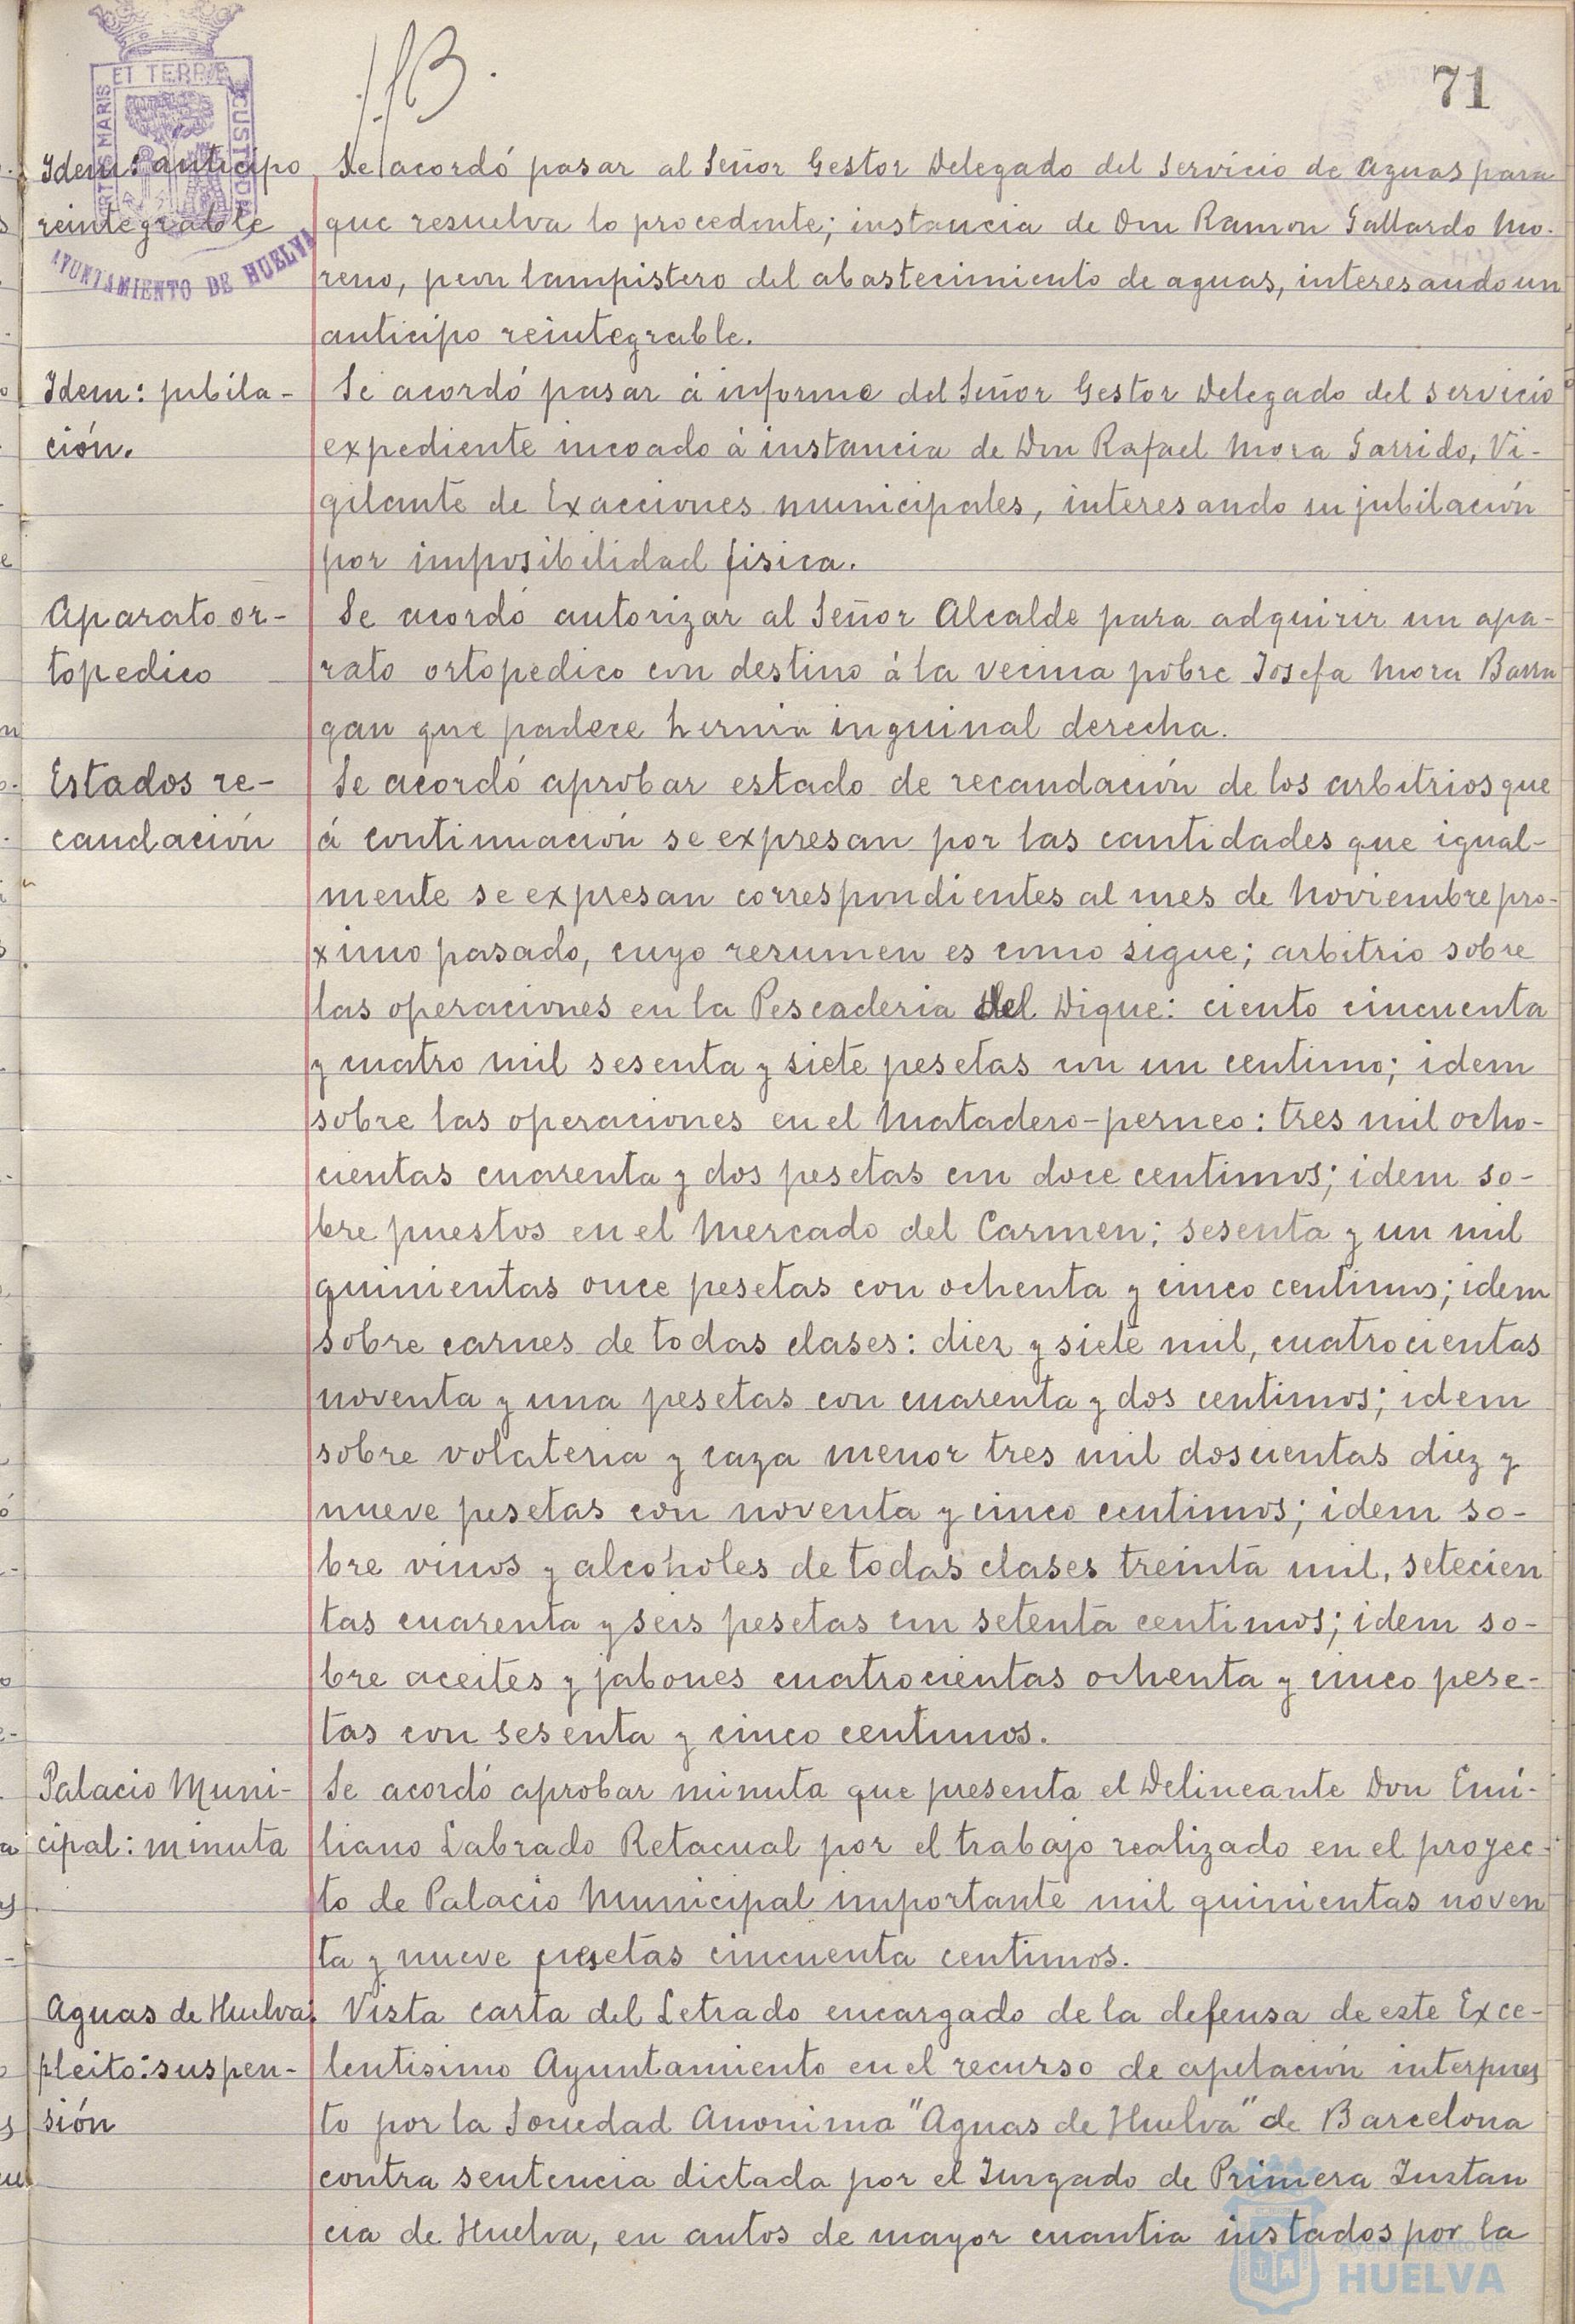 71
ET TERRÆ
MARIS
CUSTOD
AYUNTAMIENTO DE HUELVA
Idem: anticipo
reintegrable
Se acordó pasar al Señor Gestor Delegado del Servicio de Aguas para
que resuelva lo procedente; instancia de Don Ramon Gallardo Mo-
reno, peon lampistero del abastecimiento de aguas, interesando un
anticipo reintegrable.
Idem: jubila-
ción.
Se acordó pasar á informe del Señor Gestor Delegado del servicio
expediente incoado á instancia de Don Rafael Mora Garrido, Vi-
gilante de Exacciones municipales, interesando su jubilación
por imposibilidad fisica.
Aparato or-
topedico
Se acordó autorizar al Señor Alcalde para adquirir un apa-
rato ortopedico con destino á la vecina pobre Josefa Mora Barra
gan que padece hernia inguinal derecha.
Estados re-
caudación
Se acordó aprobar estado de recaudación de los arbitrios que
á continuación se expresan por las cantidades que igual-
mente se expresan correspondientes al mes de Noviembre pro-
ximo pasado, cuyo resumen es como sigue; arbitrio sobre
las operaciones en la Pescaderia del Dique: ciento cincuenta
y cuatro mil sesenta y siete pesetas con un centimo; idem
sobre las operaciones en el Matadero-perneo: tres mil ocho-
cientas cuarenta y dos pesetas con doce centimos; idem so-
bre puestos en el Mercado del Carmen; sesenta y un mil
quinientas once pesetas con ochenta y cinco centimos; idem
sobre carnes de todas clases: diez y siete mil, cuatrocientas
noventa y una pesetas con cuarenta y dos centimos; idem
sobre volateria y caza menor tres mil doscientas diez y
nueve pesetas con noventa y cinco centimos; idem so-
bre vinos y alcoholes de todas clases treinta mil, setecien
tas cuarenta y seis pesetas con setenta centimos; idem so-
bre aceites y jabones cuatrocientas ochenta y cinco pese-
tas con sesenta y cinco centimos.
Palacio Muni-
cipal: minuta
Se acordó aprobar minuta que presenta el Delineante Don Emi-
liano Labrado Retacual por el trabajo realizado en el proyec-
to de Palacio Municipal importante mil quinientas noven
ta y nueve pesetas cincuenta centimos.
Aguas de Huelva;
pleito: suspen-
sión
Vista carta del Letrado encargado de la defensa de este Exce-
lentisimo Ayuntamiento en el recurso de apelación interpues
to por la Sociedad Anonima "Aguas de Huelva" de Barcelona
contra sentencia dictada por el Juzgado de Primera Instan
cia de Huelva, en autos de mayor cuantia instados por la
Ayuntamiento de
HUELVA